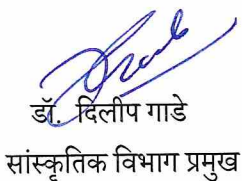 डॉ. दिलीप गाडे
सांस्कृतिक विभाग प्रमुख